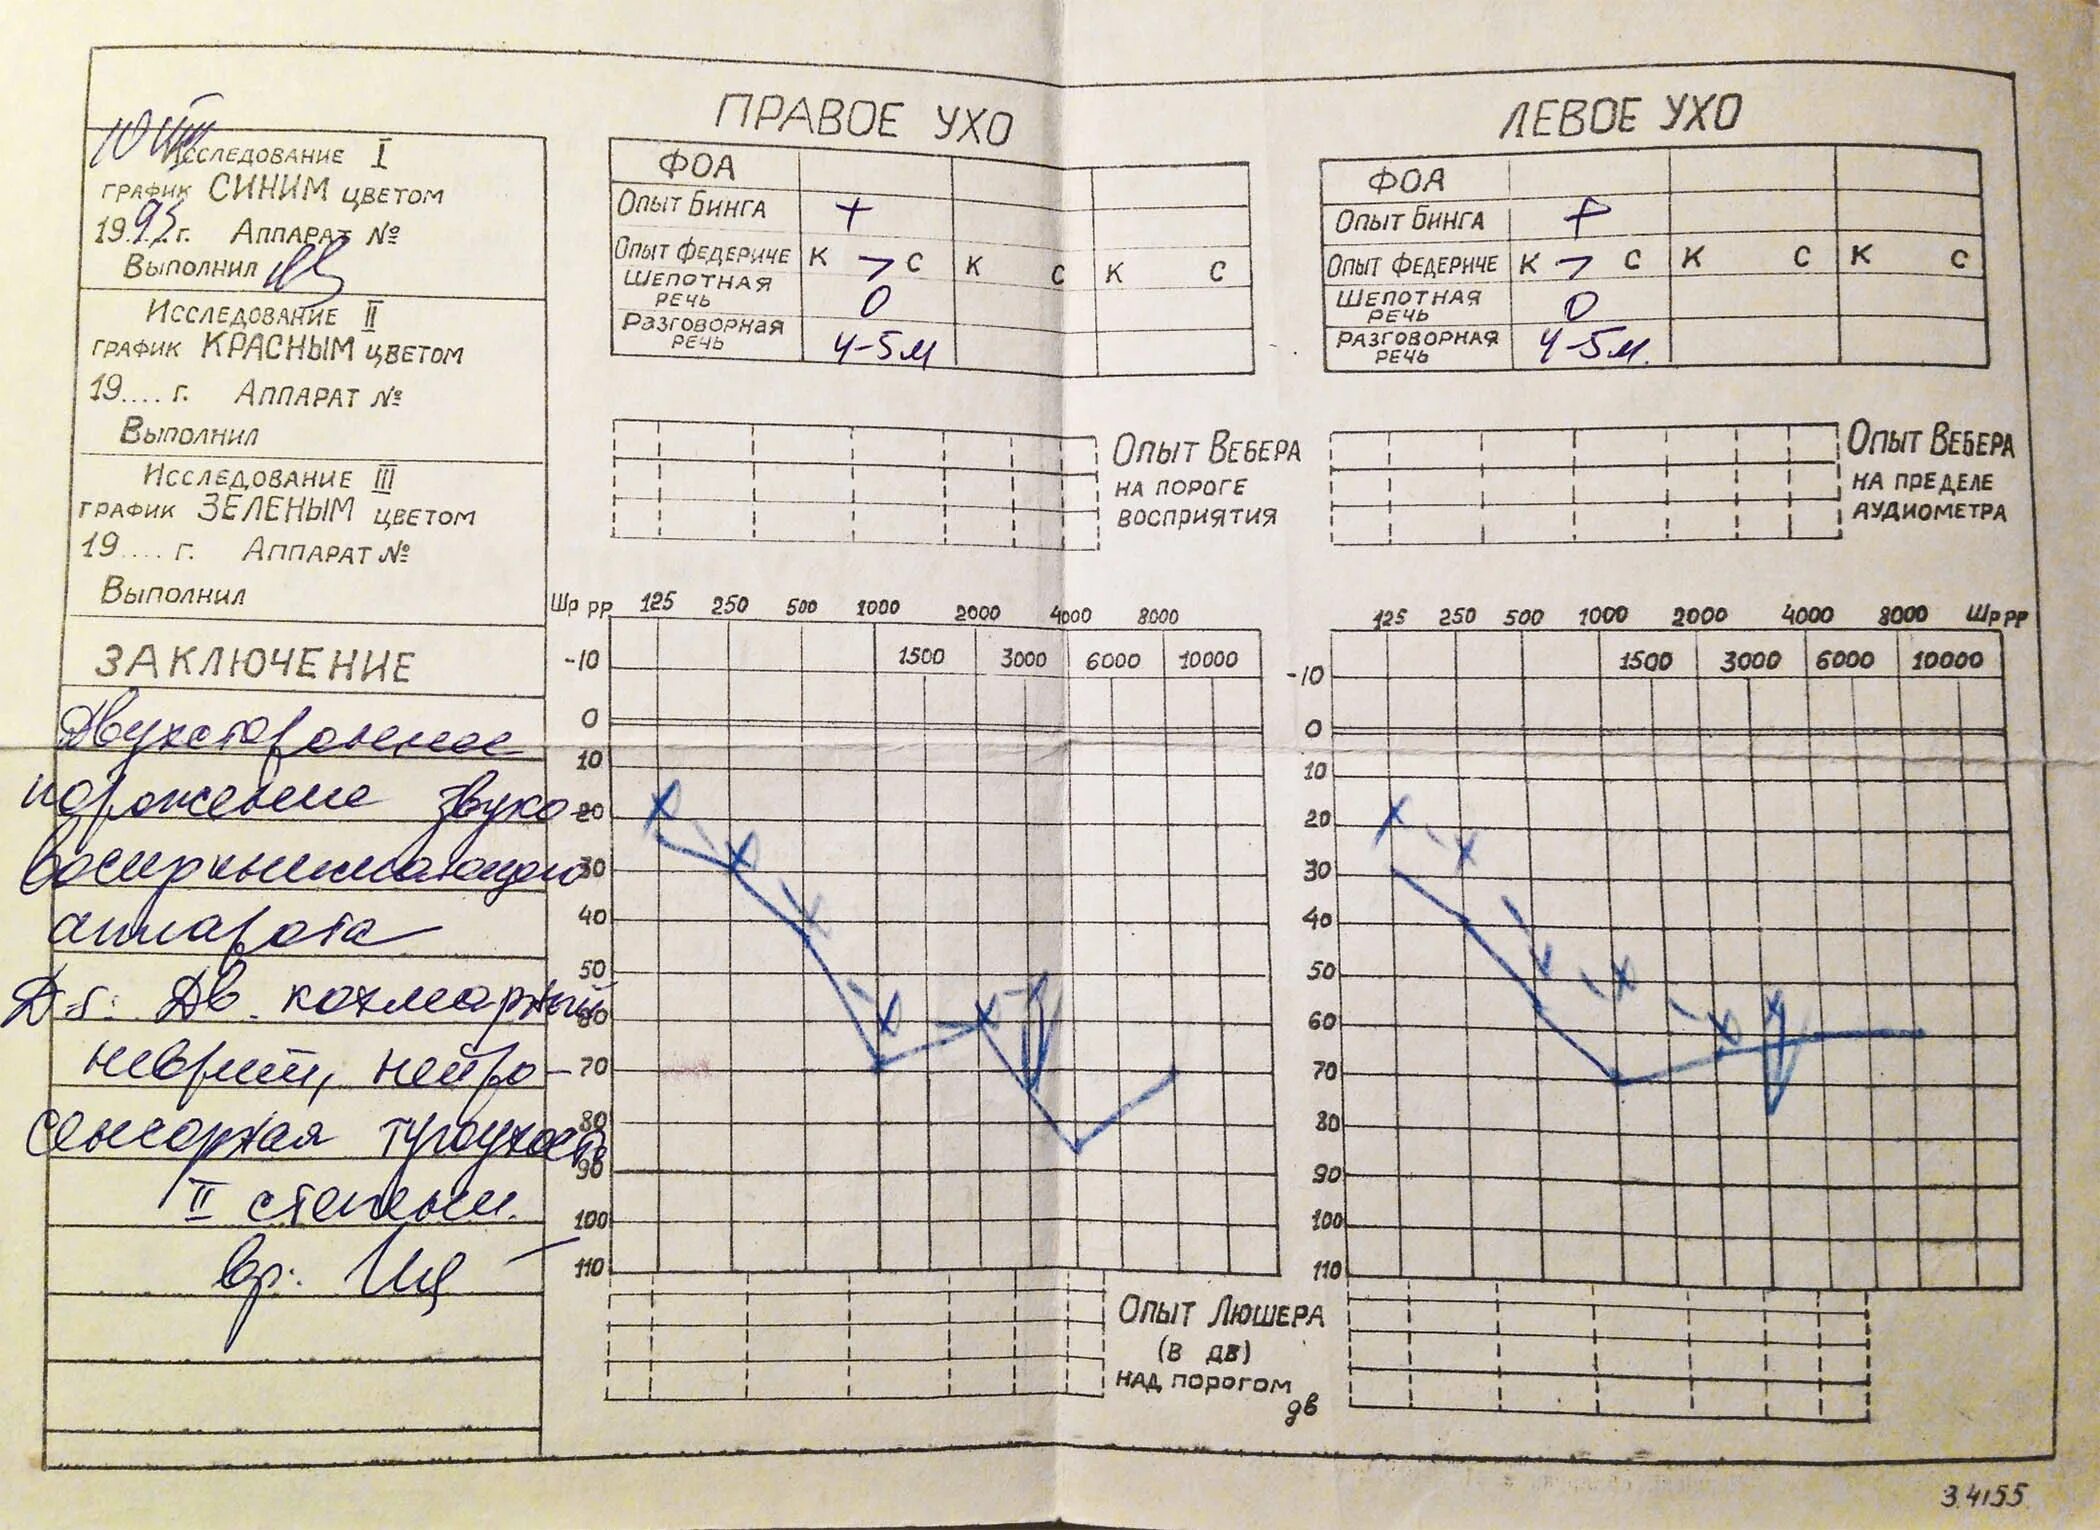 ПРАВОЕ УХО
ЛЕВОЕ УХО
Исследование I
график СИНИМ цветом
1995 г. Аппарат №
Выполнил
Исследование II
график КРАСНЫМ цветом
19.... г. Аппарат №
Выполнил
Исследование III
график ЗЕЛЕНЫМ цветом
19.... г. Аппарат №
Выполнил
ЗАКЛЮЧЕНИЕ
Двухстороннее
поражение звуко-
воспринимающего
аппарата
Ds: Дв. кохлеарный
неврит, нейро-
сенсорная тугоухость
II степени.
вр.
ФОА
Опыт Бинга +
Опыт Федериче К > С К С К С
Шепотная речь 0
Разговорная речь 4-5м
ФОА
Опыт Бинга +
Опыт Федериче К > С К С К С
Шепотная речь 0
Разговорная речь 4-5м.
Опыт Вебера
на пороге
восприятия
Опыт Вебера
на пределе
аудиометра
Шр рр 125 250 500 1000 2000 4000 8000
1500 3000 6000 10000
-10
0
10
20
30
40
50
60
70
80
90
100
110
125 250 500 1000 2000 4000 8000 Шр рр
1500 3000 6000 10000
-10
0
10
20
30
40
50
60
70
80
90
100
110
Опыт Люшера
(в дв)
над порогом
дв
3.4155